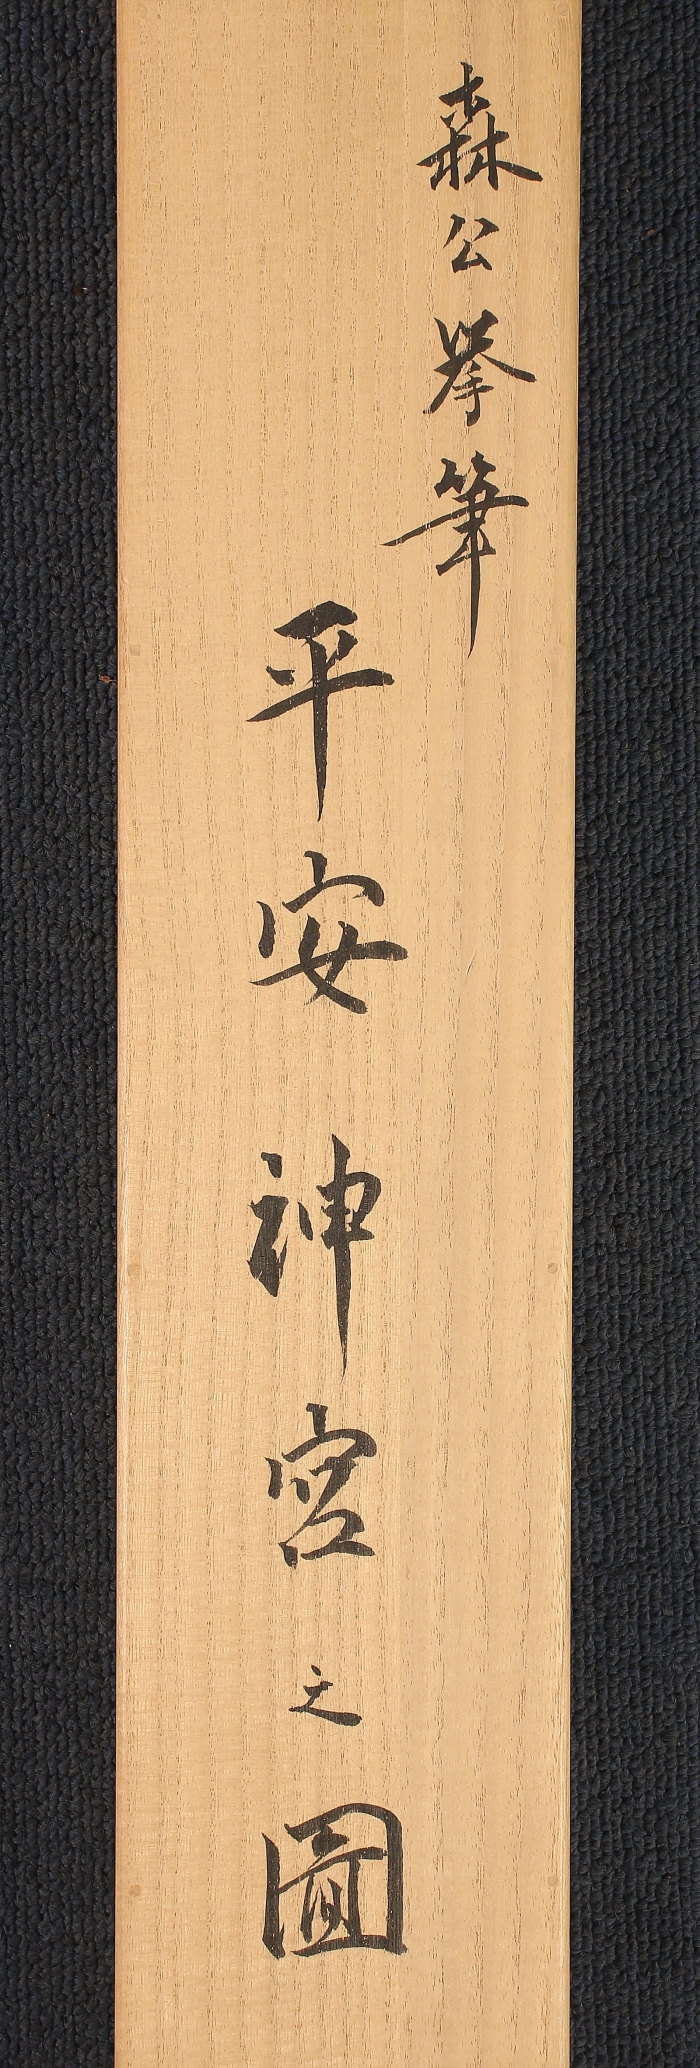 森公挙筆
平安神宮之圖